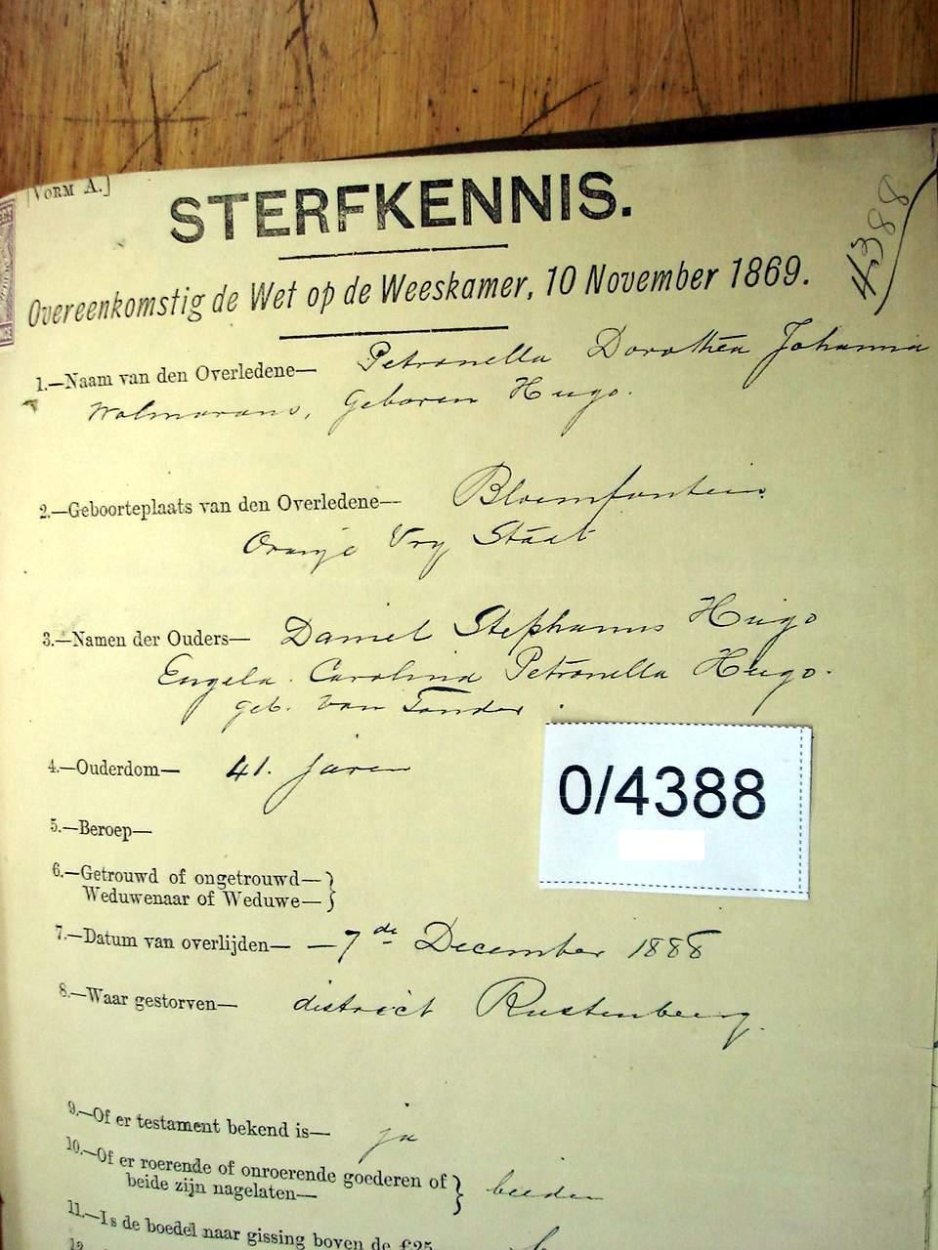 [VORM A.]
STERFKENNIS.
4388
Overeenkomstig de Wet op de Weeskamer, 10 November 1869.
1.—Naam van den Overledene— Petronella Dorothea Johanna
Wolmarans, Geboren Hugo.
2.—Geboorteplaats van den Overledene— Bloemfontein
Oranje Vry Staat
3.—Namen der Ouders— Daniel Stephanus Hugo
Engela Carolina Petronella Hugo.
geb. van Tonder.
4.—Ouderdom— 41. jaren
0/4388
5.—Beroep—
6.—Getrouwd of ongetrouwd—
Weduwenaar of Weduwe—
7.—Datum van overlijden— — 7de December 1888
8.—Waar gestorven— district Rustenburg.
9.—Of er testament bekend is— ja
10.—Of er roerende of onroerende goederen of
beide zijn nagelaten— beiden
11.—Is de boedel naar gissing boven de £25
12